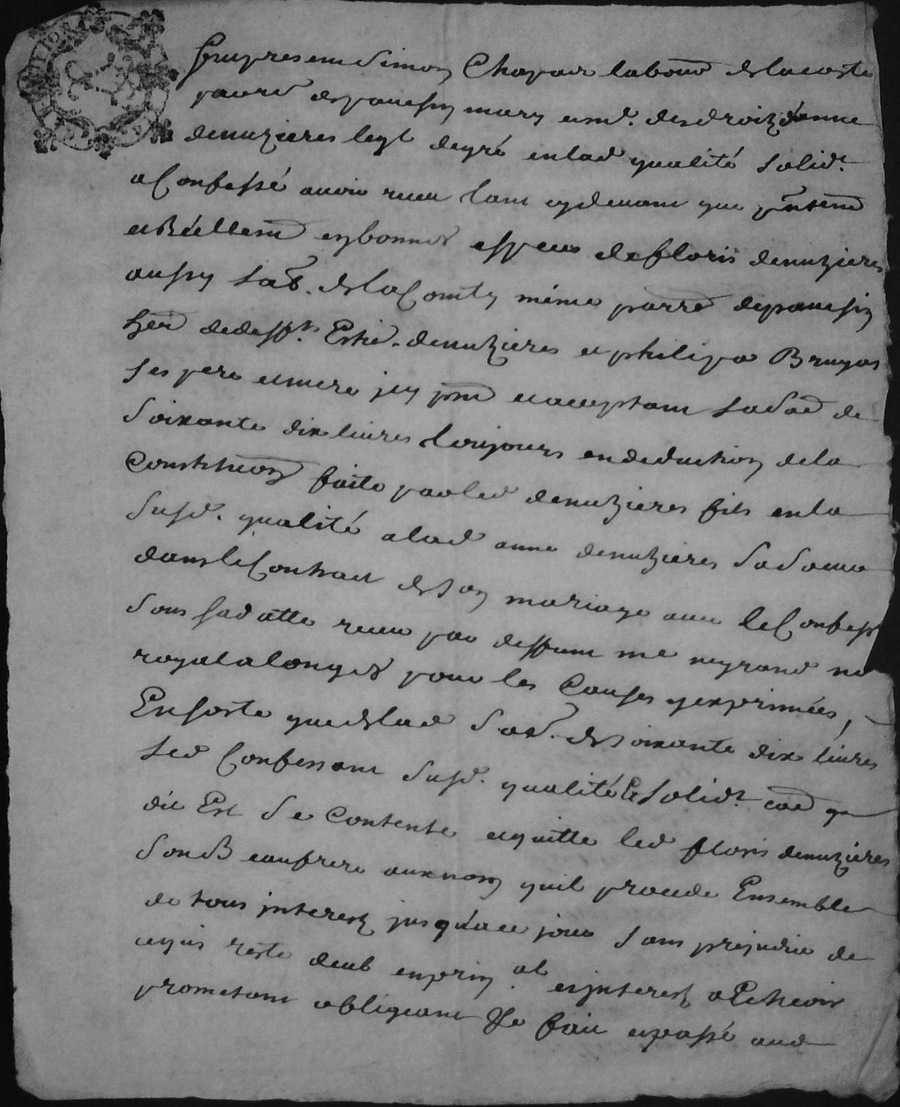 Simon Chapuis labour de lacoste
parre depouessin mary et md. des droitz danne
denuzieres leql degré en lad qualité solidt
a Confessé avoir receu tant cydevant que pntemt
et Réellemt en bonnes especes de floris denuzieres
aussy lab. de la Comty méme parre depouessin
herer de deffts Estie denuzieres et philipa Bruyas
ses pere et mere icy pnt et aceptant la sod de
soixante dix livres toujours en deduction de la
Constitution faite par led denuzieres fils en la
susd. qualité a lad anne denuzieres sa soeur
dans le Contract de son mariage avec le Confesst
sous sa datte receu par deffunt me negrand nore
royal a longes pour les Causes y exprimées,
En sorte que de lad sod. de soixante dix livres
led Confessant susd. qualité Et solidt come q
dit Est se Contente et quitte led floris denuzieres
son Beaufrere aux nom quil procede Ensemble
de tous interestz jusqua ce jour sans prejudice de
ce qui reste deub en prin al et interestz a Echeoir
prometant obligeant &c fait et passé aud